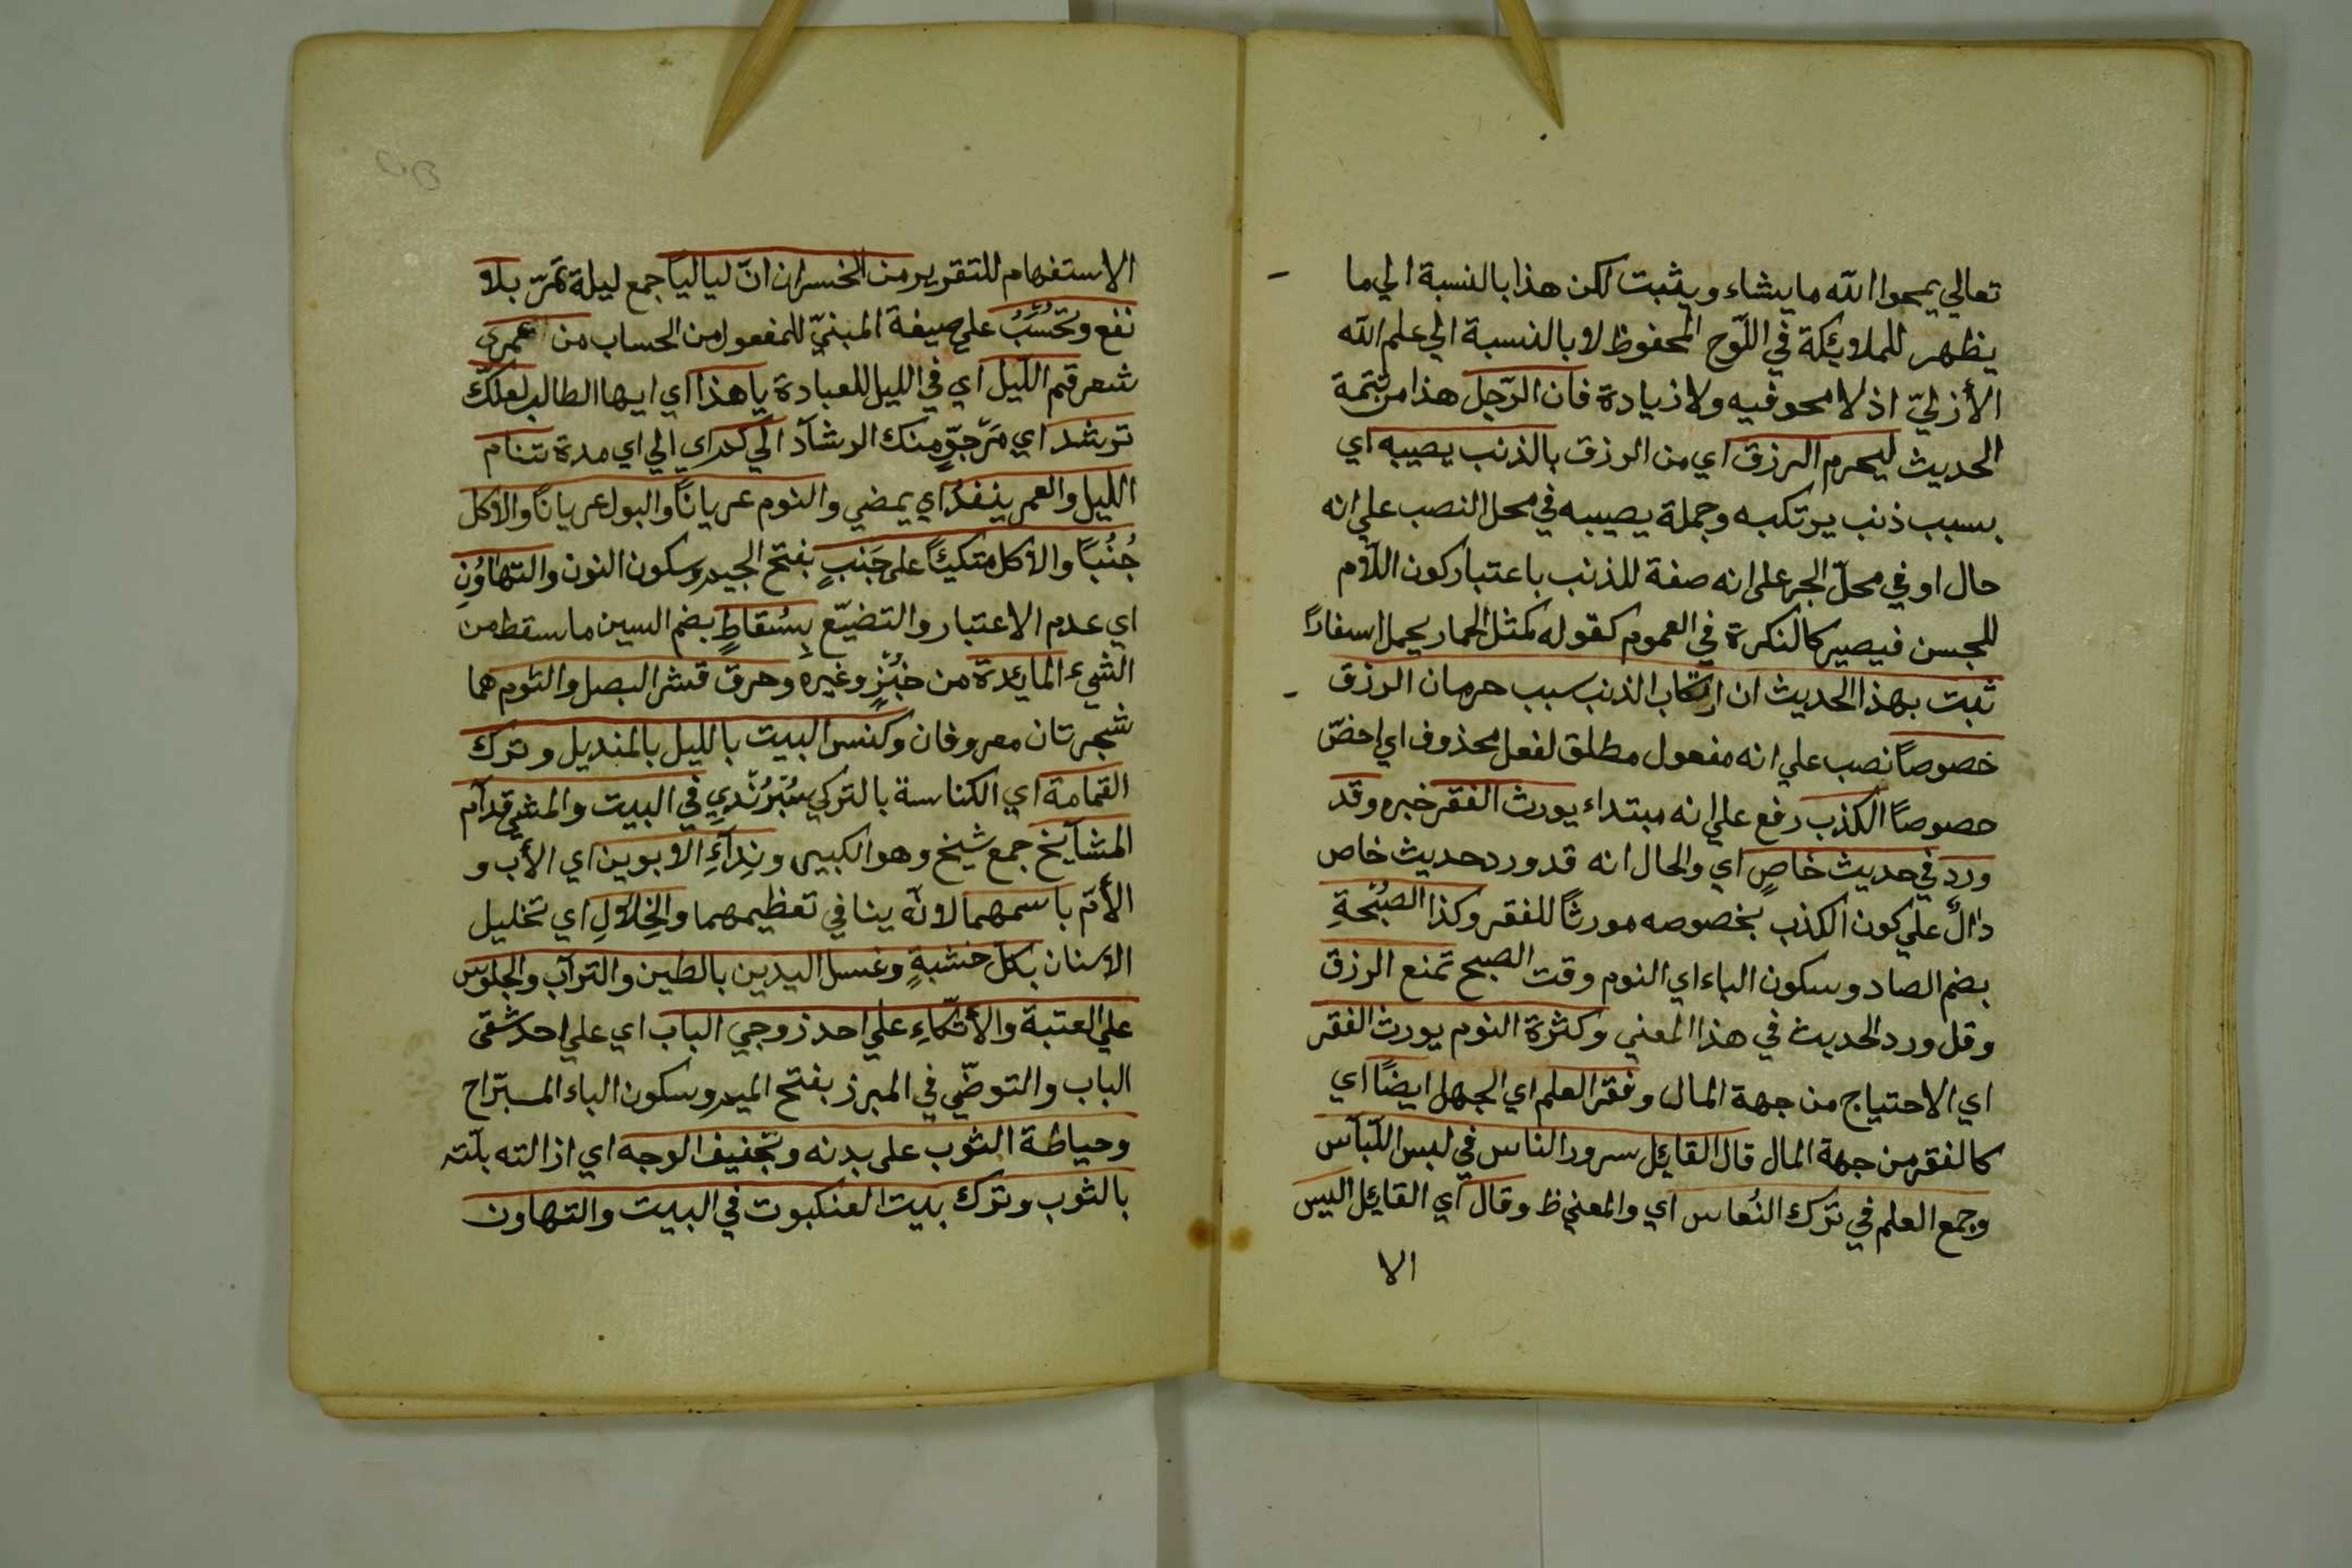 تعالي يمحوا الله ما يشاء ويثبت لكن هذا بالنسبة الي ما
يظهر للملايئكة في اللّوح المحفوظ لا بالنسبة الي علم الله
الأزليّ اذ لا محو فيه ولا زيادة فان الرّجل هذا من تتمة
الحديث ليحرم الرزق اي من الرزق بالذنب يصيبه اي
بسبب ذنب يرتكبه وجملة يصيبه في محل النصب علي انه
حال او في محلّ الجر على انه صفة للذنب باعتبار كون اللّام
للجسن فيصير كالنكرة في العموم كقوله كمثل الحمار يحمل اسفارًا
ثبت بهذا الحديث ان ارتكاب الذنب سبب حرمان الرزق
خصوصًا نصب علي انه مفعول مطلق لفعل محذوف اي اخصّ
حصوصًا الكذب رفع علي انه مبتداء يورث الفقر خبره وقد
ورد في حديث خاصٍ اي والحال انه قد ورد حديث خاص
دالٌ علي كون الكذب بخصوصه مورثًا للفقر وكذا الصُبْحَةِ
بضم الصاد وسكون الباء اي النوم وقت الصبح تمنع الرزق
وقل ورد الحديث في هذا المعني وكثرة النوم يورث الفقر
اي الاحتياج من جهة المال وفقر العلم اي الجهل ايضًا اي
كالفقر من جهة المال قال القايئل سرور الناس في لبس اللّباس
وجمع العلم في ترك النُعاس اي والمعني ظ وقال اي القايئل اليس
الا
الاستفهام للتقرير من الخسران انّ لياليا جمع ليلة تمرّ بلا
نفع وتحُسَبُ علي صيغة المبنيّ للمفعول من الحساب من عمري
شعر قم اللّيل اي في الليل للعبادة يا هذا اي ايها الطالب لعلّك
ترشد اي مَرّجوٍّ منك الرشاد الي كم اي الي اي مدة تنام
الليل والعمر ينفدُ اي يمضي والنوم عريانًا والبول عريانًا والاكل
جُنُبًا والاكل متكيئًا على جَنبٍ بفتح الجيم وسكون النون والتهاوُنِ
اي عدم الاعتبار والتضيّع بِسُقاطٍ بضم السين ما سقط من
الشيء المايئدة من خبُزٍ وغيره وحرق قشر البصل والثوم هما
شجرتان معروفان وكنس البيت بالليل بالمنديل وترك
القمامة اي الكناسة بالتركي سُبُرُنْدي في البيت والمشي قدآم
المشآيخ جمع شيخ وهو الكبير ونِدآءِ الابوين اي الأب و
الأمّ باسمهما لانّه ينافي تعظيمهما والخِلالِ اي تخليل
الاسنان بكلّ خشبةٍ وغسل اليدين بالطين والترآب والجلوس
علي العتبة والأتّكاءِ علي احد زوجي الباب اي علي احد شقى
الباب والتوضّي في المبرز بفتح الميم وسكون الباء المستراح
وحياطة الثوب على بدنه وتجفيف الوجه اي ازالته بلّته
بالثوب وترك بيت العنكبوت في البيت والتهاون